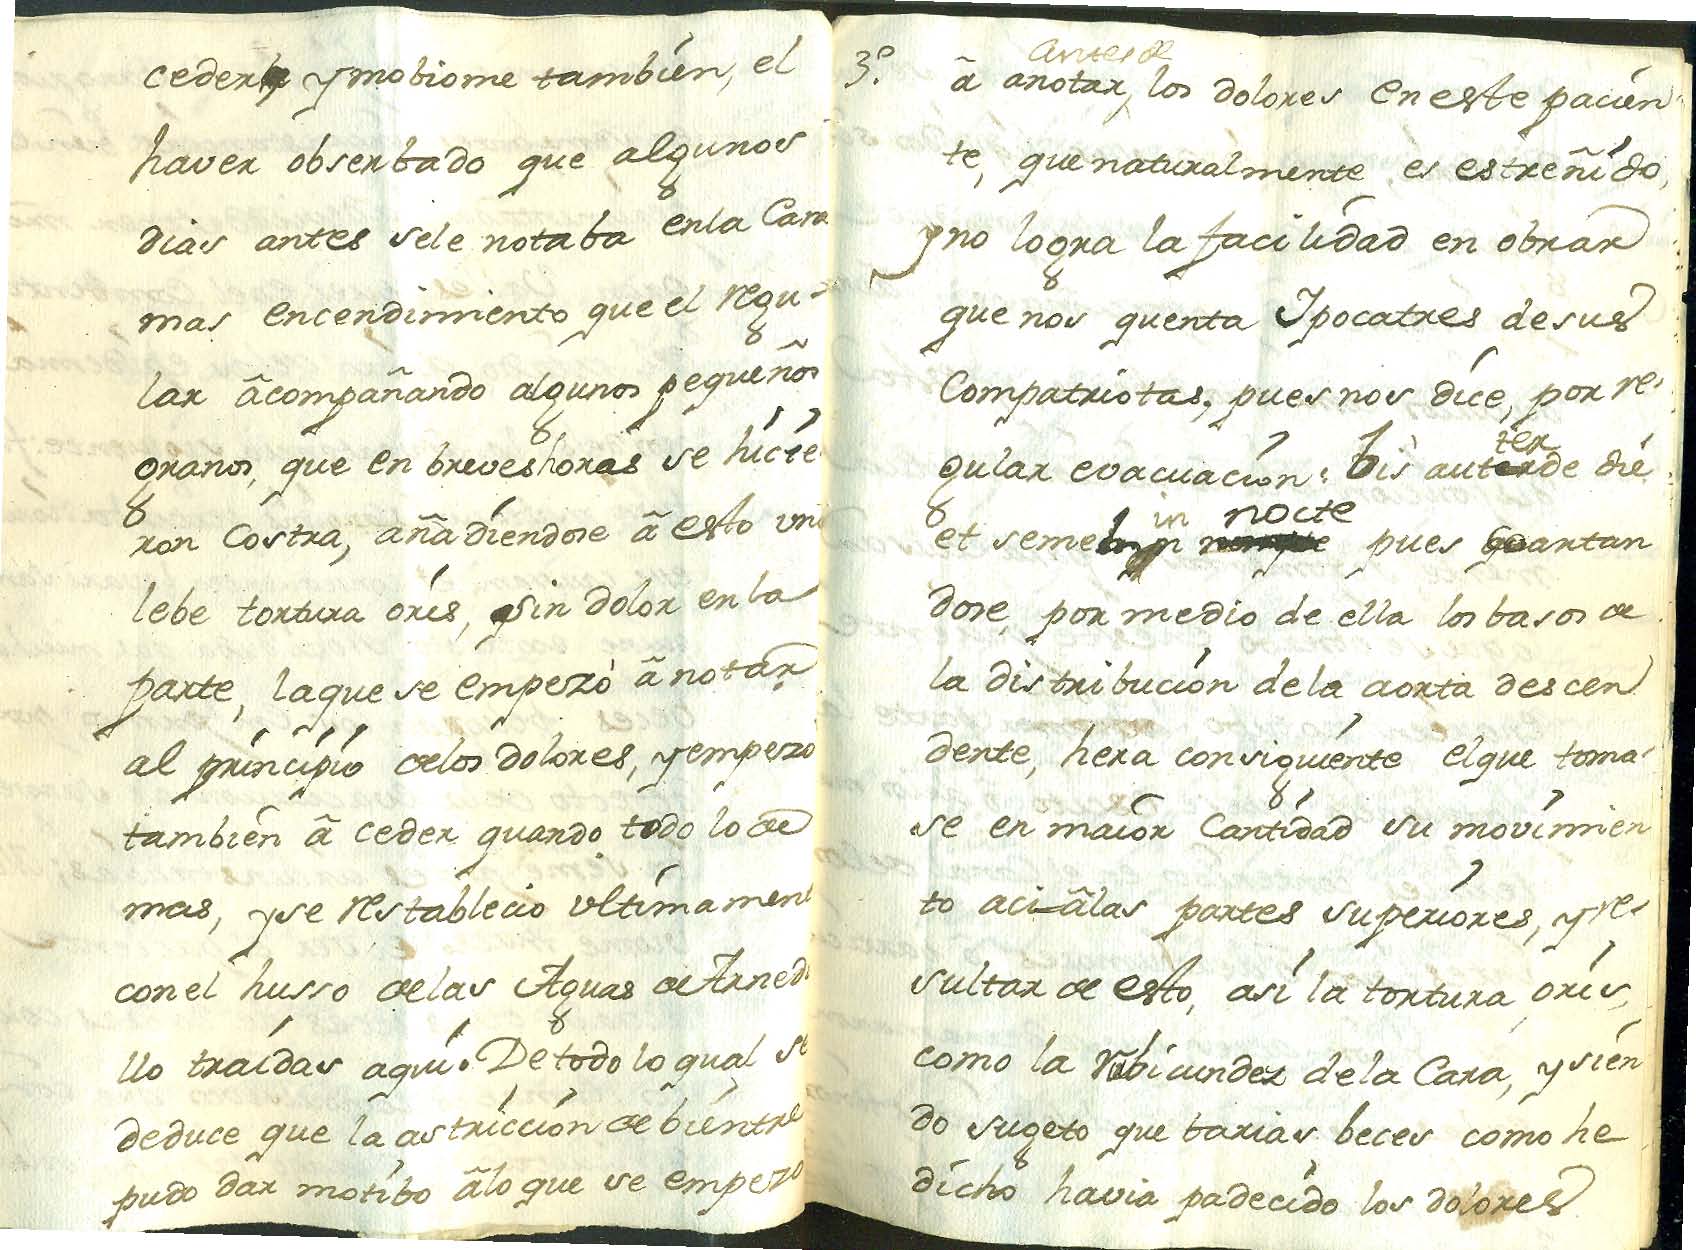 ceder y mobiome tambien, el
haver obserbado que algunos
dias antes sele notaba enla Cara
mas encendimiento que el regu-
lar ãcompañando algunos pequeños
granos, que en breves horas se hicie
ron Costra, añadiendose ã esto una
lebe tortura oris, sin dolor en la
parte, laque se empezó ã notar
al principio delos dolores, y empezo
tambien ã ceder quando todo lo de
mas, y se restablecio ultimament
con el husso delas Aguas de Arnedi
llo traídas aquí. De todo lo qual se
deduce que la astriccion de bientre
pudo dar motibo ãlo que se empezo
3º.
antes de
ã anotar, los dolores en este pacien
te, que naturalmente es estreñido,
y no logra la facilidad en obrar
que nos quenta Ipocatres de sus
Compatriotas, pues nos dice, por re-
gular evacuacion: bis auterde die
ter
in nocte
et semel in pues coartan
dose, por medio de ella los basos de
la distribucion dela aorta descen
dente, hera consiguiente elque toma-
se en maior Cantidad su movimien
to aci ãlas partes superiores, y re-
sultar de esto, así la tortura oris,
como la rubicundez dela Cara, y sien
do sugeto que barias beces como he
dicho havia padecido los dolores